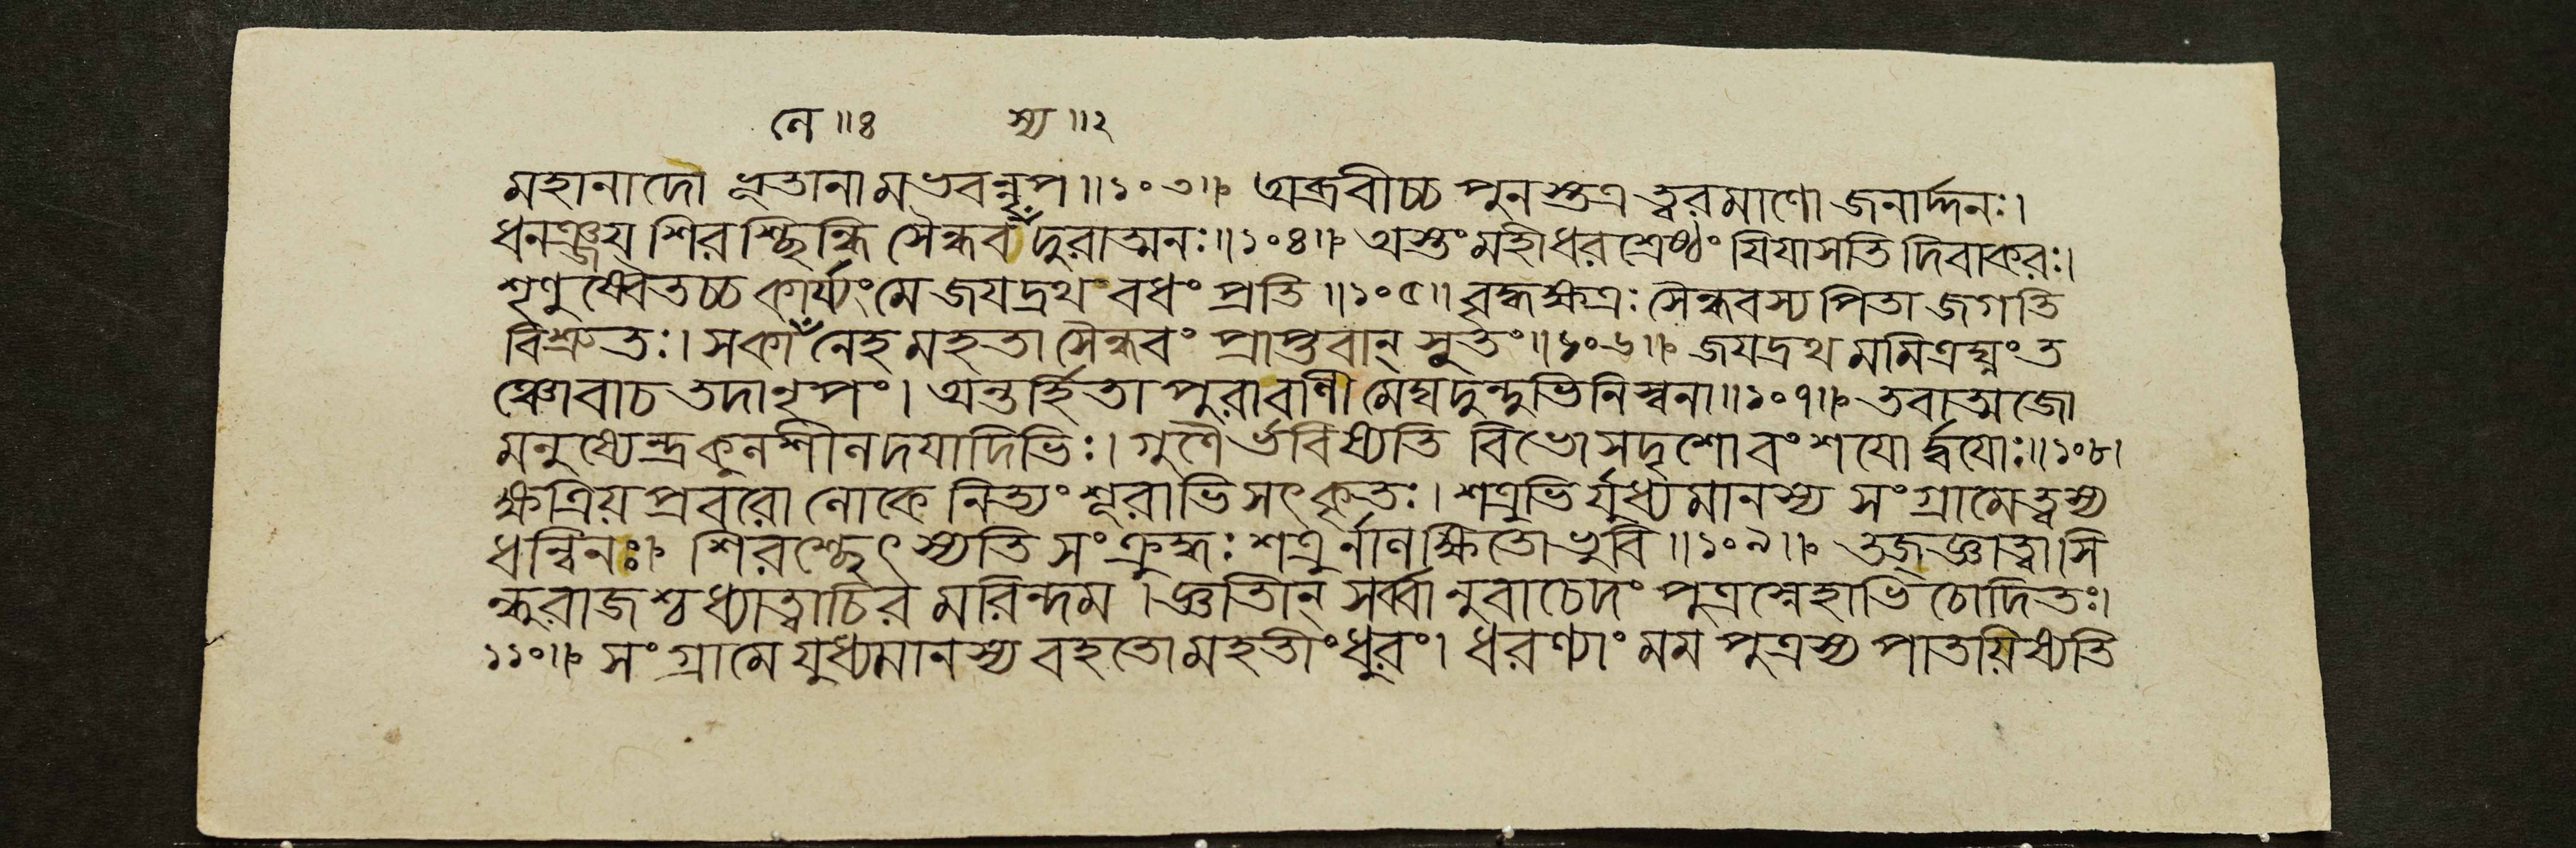 নে ॥৪ স্য ॥২
মহানাদো ভূতানামভবন্নৃপ॥১০৩॥ অব্রবীচ্চ পুনস্তত্র ত্বরমাণো জনার্দ্দনঃ।
ধনঞ্জয় শিরশ্ছিন্ধি সৈন্ধব দুরাত্মনঃ॥১০৪॥ অস্তং মহীধরশ্রেষ্ঠং যিযাসতি দিবাকরঃ।
শৃণুষ্বৈতচ্চ কার্য্যং মে জয়দ্রথং বধং প্রতি॥১০৫॥ বৃদ্ধক্ষত্রঃ সৈন্ধবস্য পিতা জগতি
বিশ্রুতঃ। স কালেঁনেহ মহতা সৈন্ধবং প্রাপ্তবান্ সুতং॥১০৬॥ জয়দ্রথমমিত্রঘ্নং ত
ঞ্চোবাচ তদা নৃপং। অন্তর্হিতা পুরা বাণী মেঘদুন্দুভিনিস্বনা॥১০৭॥ তবাত্মজো
মনুষ্যেন্দ্র কুলশীলদয়াদিভিঃ। গুণৈর্ভবিষ্যতি বিভো সদৃশো বংশয়োর্দ্বয়োঃ॥১০৮।
ক্ষত্রিয়প্রবরো লোকে নিত্যং শূরাভিসৎকৃতঃ। শত্রুভির্যুধ্যমানস্য সংগ্রামে ত্বস্য
ধন্বিনঃ। শিরশ্ছেৎস্যতি সংক্রুদ্ধঃ শত্রুর্নালক্ষিতো ভুবি॥১০৯॥ তজ্জ্ঞাত্বা সি
ন্ধুরাজশ্ব ধ্যাত্বা চিরমরিন্দম। জ্ঞাতীন্ সর্ব্বানুবাচেদং পুত্রস্নেহাভিচোদিতঃ।
১১০॥ সংগ্রামে যুধ্যমানস্য বহতো মহতীং ধুরং। ধরণ্যাং মম পুত্রস্য পাতয়িষ্যতি